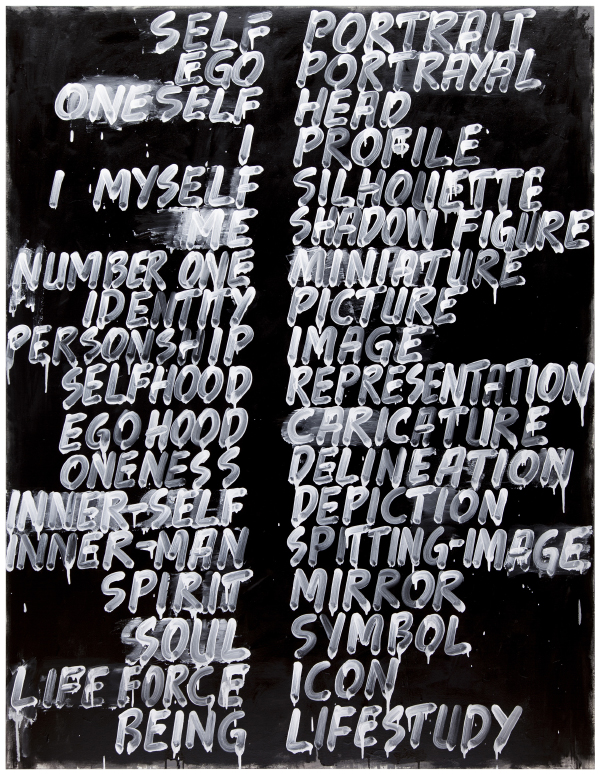 SELF PORTRAIT
EGO PORTRAYAL
ONESELF HEAD
I PROFILE
I MYSELF SILHOUETTE
ME SHADOW FIGURE
NUMBER ONE MINIATURE
IDENTITY PICTURE
PERSONSHIP IMAGE
SELFHOOD REPRESENTATION
EGOHOOD CARICATURE
ONENESS DELINEATION
INNER-SELF DEPICTION
INNER-MAN SPITTING-IMAGE
SPIRIT MIRROR
SOUL SYMBOL
LIFE FORCE ICON
BEING LIFESTUDY